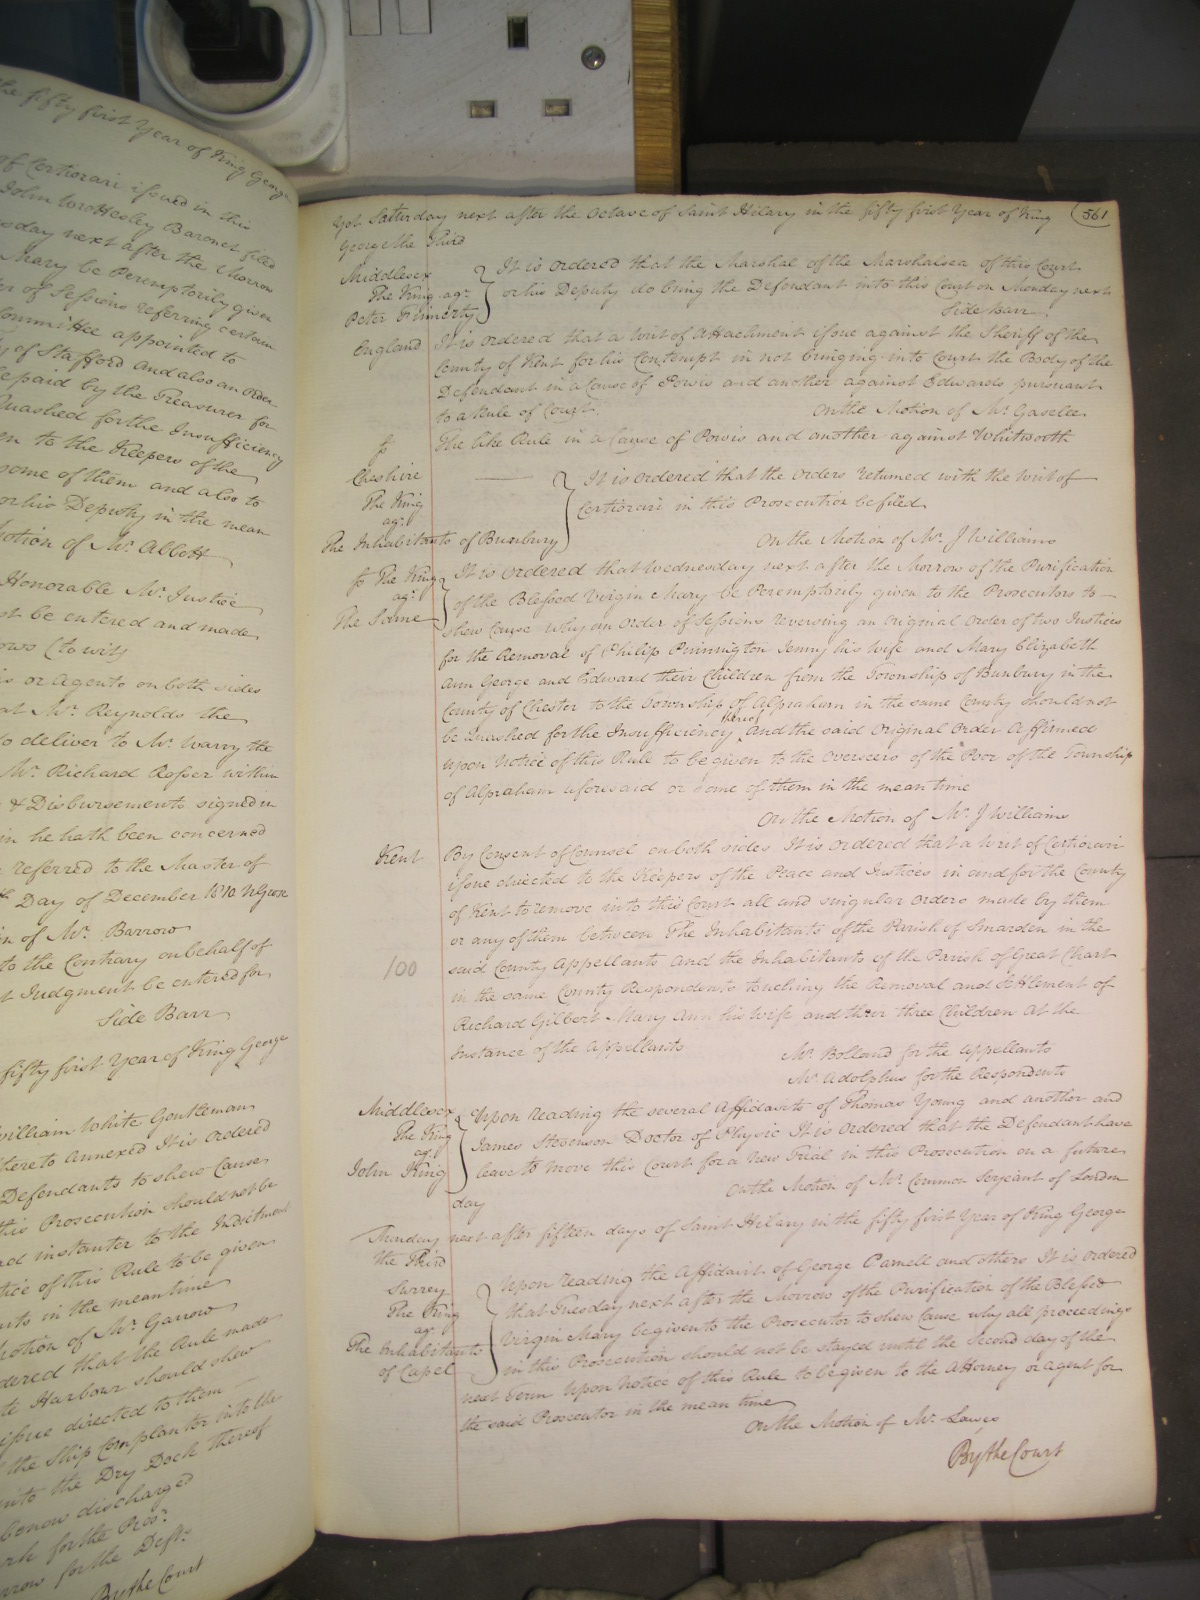 the fifty first Year of King George
of Certiorari issued in this
John Wrottesley Baronet filed
next after the Morrow
Mary be Peremptorily given
of Sessions referring certain
Committee appointed to
of Stafford and also an Order
be paid by the Treasurer for
Quashed for the Insufficiency
to the Keepers of the
some of them and also to
or his Deputy in the mean
Motion of Mr. Abbott
Honorable Mr. Justice
be entered and made
(to wit)
or Agents on both sides
Mr. Reynolds the
to deliver to Mr. Warry the
Mr. Richard Rosser within
& Disbursements signed in
in he hath been concerned
referred to the Master of
Day of December 1810
of Mr. Barrow
to the Contrary on behalf of
Judgment be entered for
Side Barr
fifty first Year of King George
William White Gentleman
hereto Annexed It is Ordered
Defendants to shew Cause
this Prosecution should not be
instanter to the Indictment
of this Rule to be given
in the mean time
Motion of Mr. Garrow
ordered that the Rule made
Harbour should shew
issue directed to them
the Ship Complanter into the
into the Dry Dock thereof
be now discharged
for the Pros.r
for the Deft.
By the Court
561
Yet Saturday next after the Octave of Saint Hilary in the fifty first Year of King
George the Third
Middlesex
The King agt.
Peter Finnerty
It is Ordered that the Marshal of the Marshalsea of this Court
or his Deputy do bring the Defendant into this Court on Monday next
Side Barr
England
It is ordered that a Writ of Attachment issue against the Sheriff of the
County of Kent for his Contempt in not bringing into Court the Body of the
Defendant in a Cause of Powis and another against Edwards pursuant
to a Rule of Court
On the Motion of Mr. Gaselee
The like Rule in a Cause of Powis and another against Whitworth
Cheshire
The King
agt.
The Inhabitants of Bunbury
It is ordered that the Orders returned with the Writ of
Certiorari in this Prosecution be filed
On the Motion of Mr. J Williams
The King
agt.
The Same
It is Ordered that Wednesday next after the Morrow of the Purification
of the Blessed Virgin Mary be Peremptorily given to the Prosecutors to
shew Cause why an Order of Sessions reversing an Original Order of two Justices
for the Removal of Philip Pinnington Jenny his Wife and Mary Elizabeth
Ann George and Edward their Children from the Township of Bunbury in the
County of Chester to the Township of Alpraham in the same County should not
be Quashed for the Insufficiency thereof and the said Original Order Affirmed
Upon Notice of this Rule to be given to the Overseers of the Poor of the Township
of Alpraham aforesaid or some of them in the mean time
On the Motion of Mr. J Williams
Kent
By Consent of Counsel on both sides It is Ordered that a Writ of Certiorari
issue directed to the Keepers of the Peace and Justices in and for the County
of Kent to remove into this Court all and singular Orders made by them
or any of them between The Inhabitants of the Parish of Smarden in the
said County Appellants and the Inhabitants of the Parish of Great Chart
in the same County Respondents touching the Removal and Settlement of
Richard Gilbert Mary Ann his Wife and their three Children At the
Instance of the Appellants
100
Mr. Bolland for the Appellants
Mr. Adolphus for the Respondents
Middlesex
The King
agt.
John King
Upon reading the several Affidavits of Thomas Young and another and
James Stevenson Doctor of Physic It is Ordered that the Defendant have
leave to move this Court for a New Trial in this Prosecution on a future
day
On the Motion of Mr. Common Serjeant of London
Monday next after fifteen days of Saint Hilary in the fifty first Year of King George
the Third
Surrey
The King
agt.
The Inhabitants
of Capel
Upon reading the Affidavit of George Carnell and others It is ordered
that Tuesday next after the Morrow of the Purification of the Blessed
Virgin Mary be given to the Prosecutor to shew Cause why all proceedings
in this Prosecution should not be stayed until the Second day of the
next Term Upon Notice of this Rule to be given to the Attorney or Agent for
the said Prosecutor in the mean time
On the Motion of Mr. Lawes
By the Court